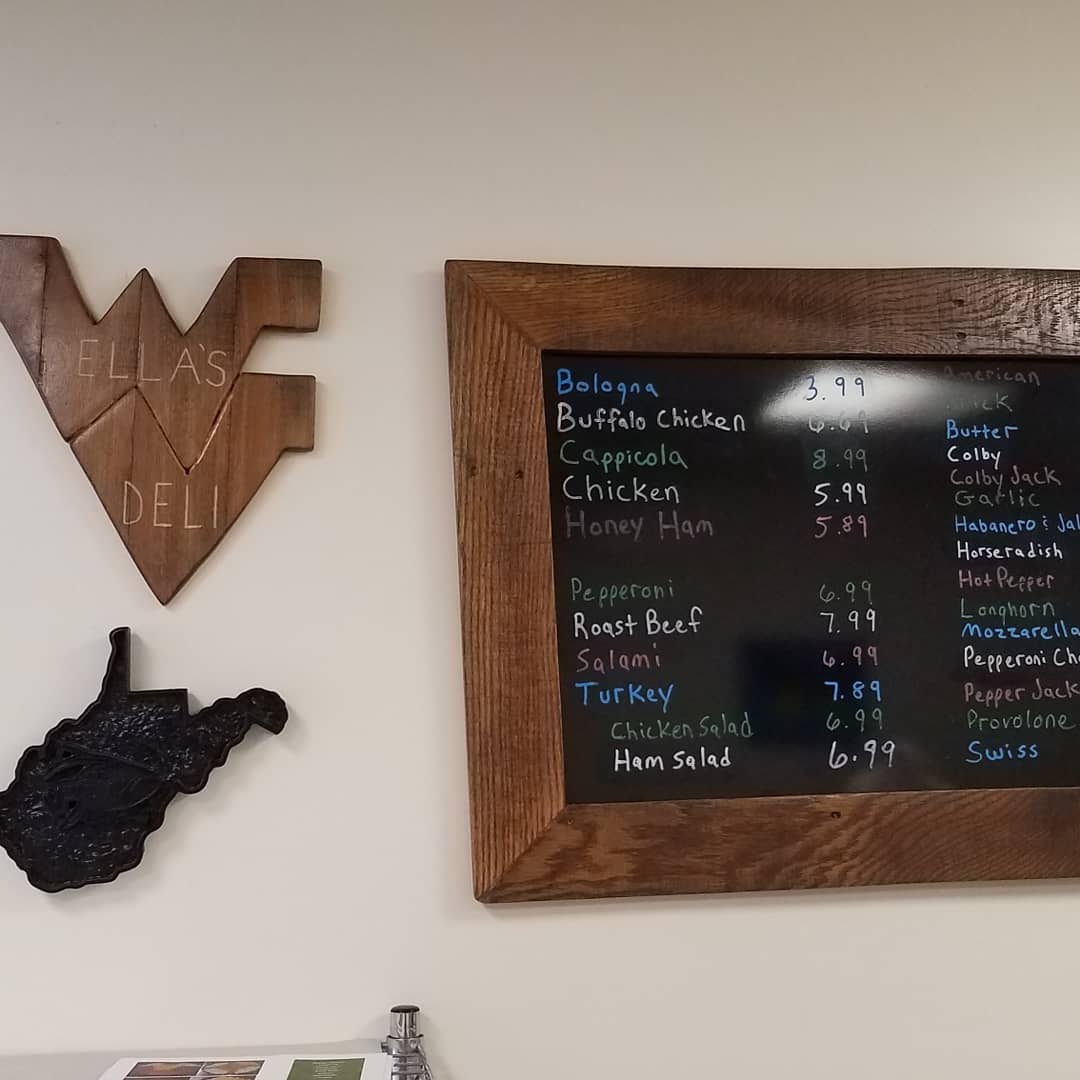 ELLA'S
DELI
Bologna 3.99
Buffalo Chicken 6.69
Cappicola 8.99
Chicken 5.99
Honey Ham 5.89
Pepperoni 6.99
Roast Beef 7.99
Salami 6.99
Turkey 7.89
Chicken Salad 6.99
Ham Salad 6.99
American
Butter
Colby
Colby Jack
Garlic
Habanero &
Horseradish
Hot Pepper
Longhorn
Mozzarella
Pepperoni
Pepper Jack
Provolone
Swiss